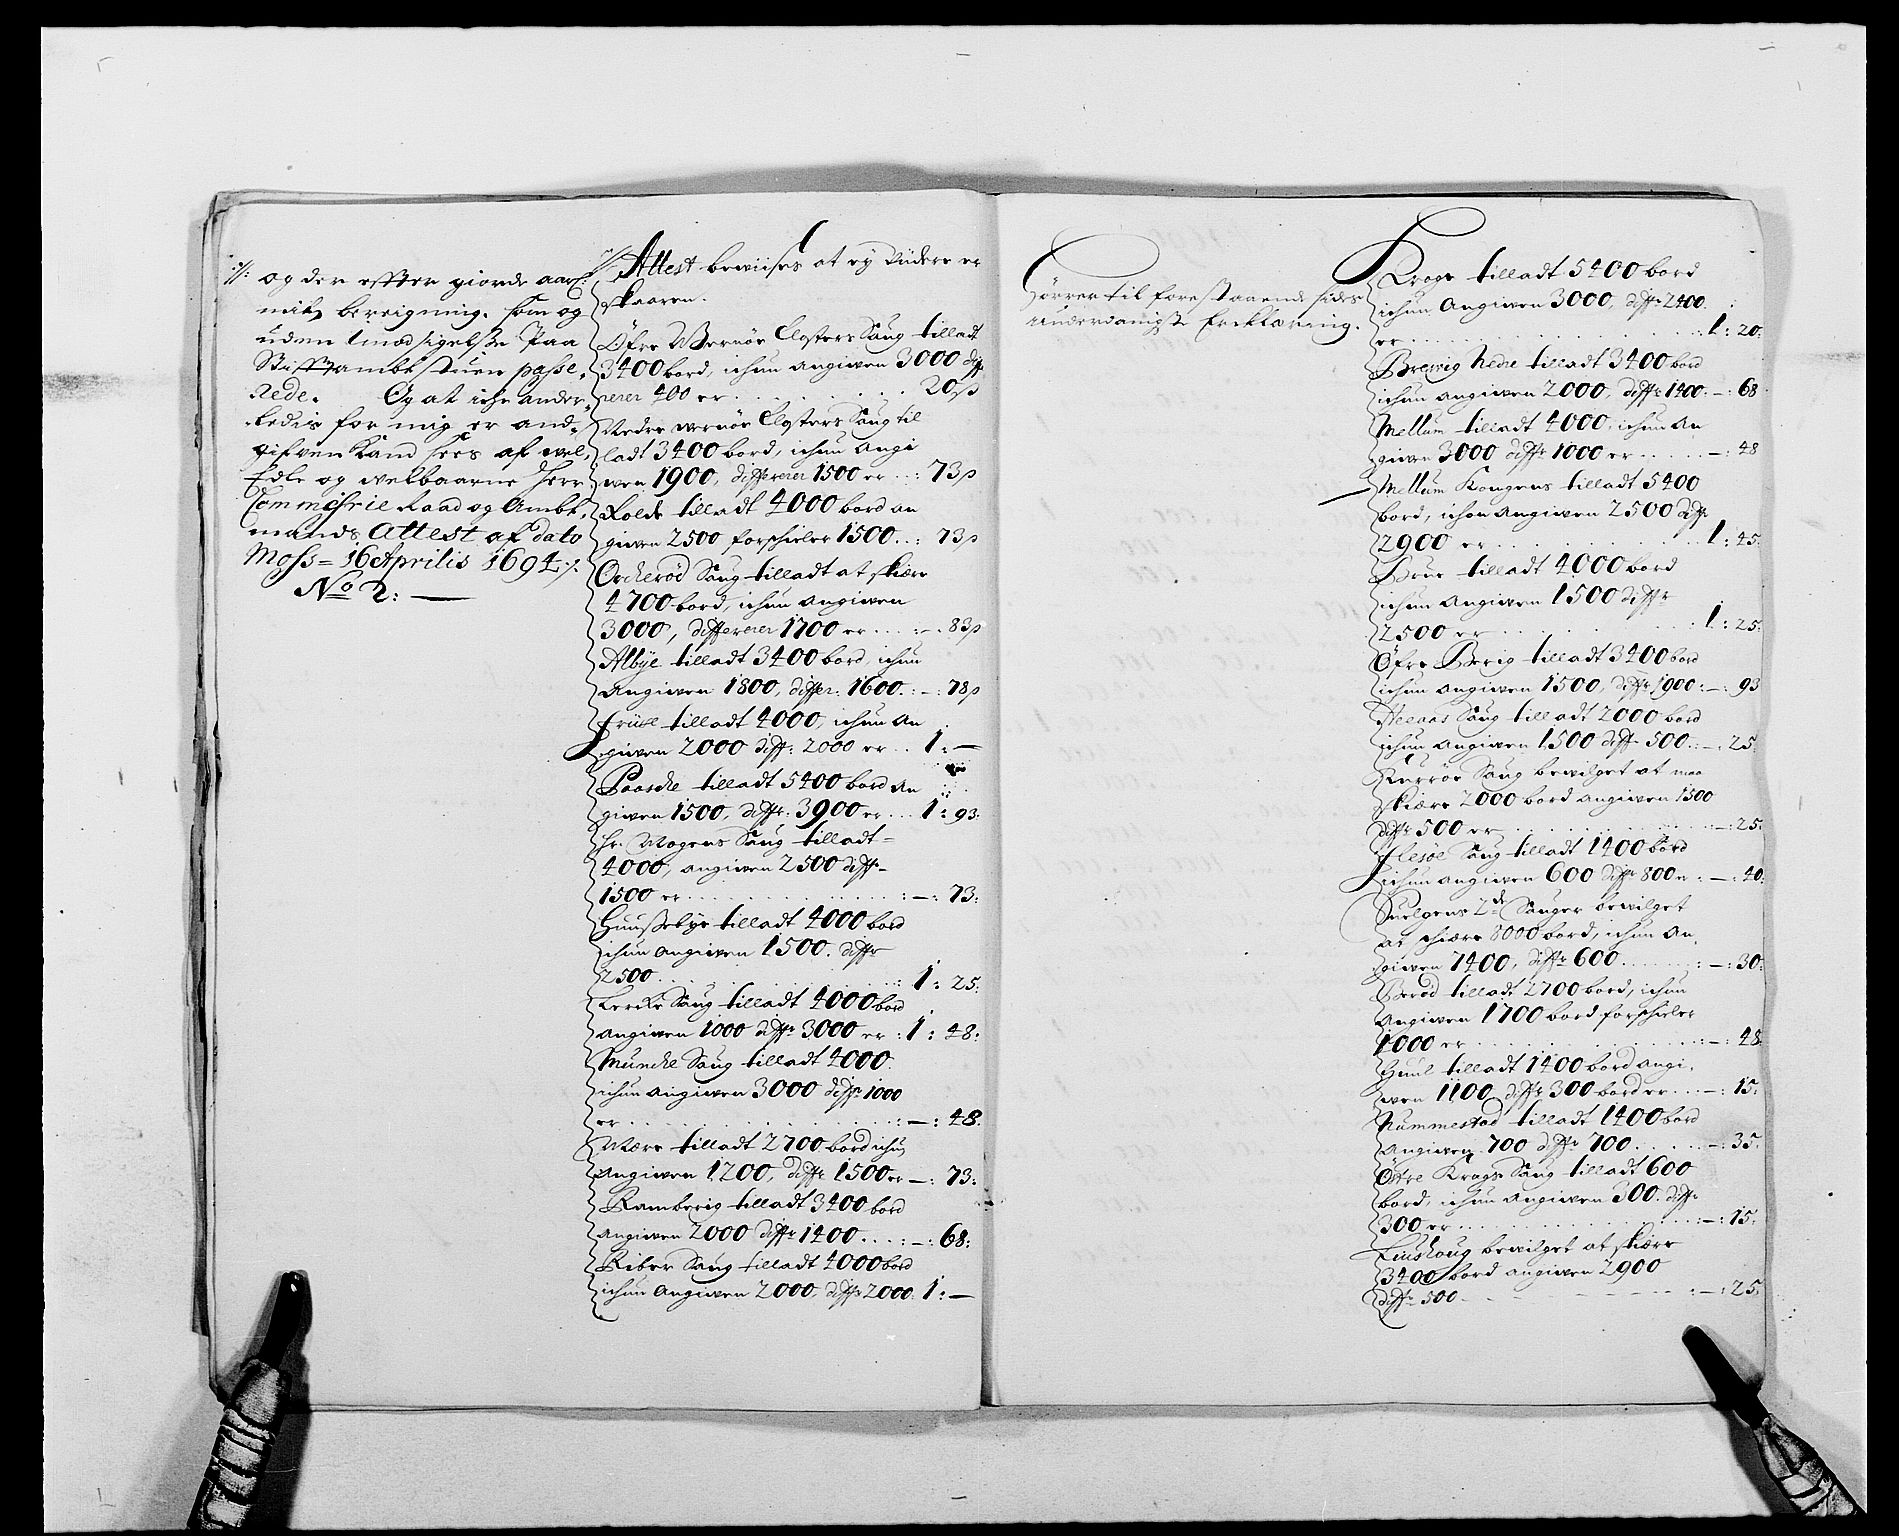 :/: og der effter giorde aarl:
mit bereigning. som og
uden imodsigelse Paa
Stifftambtstuen passe,
rede. Og at iche ander,
ledis for mig er and,
gifven kand sees af wel,
Edle og welbaarne Herr
Commissrie Raad og Ambt,
mands Attest af dato
Moss = 16 Aprilis 1694 ./.
No 2:
Attest bewiises at ey videre er
skaaren.
Öfre Wernöe Closters Saug tilladt
3400 bord, ichun angiwen 3000 diff
rerer 400 er 20 s
Nedre wernöe Closters Saug til
ladt 3400 bord, ichun angi
wen 1900, differerer 1500 er : 73 s
Rolde tilladt 4000 bord an
giwen 2500 forschieler 1500 : 73 s
Orcherød Saug tilladt at skiære
4700 bord, ichun angiwen
3000, differerer 1700 er :-: 83 s
Albÿe tilladt 3400 bord, ichun
angiwen 1800, differ: 1600 :-: 78 s
tilladt 4000, ichun an
giwen 2000 diff: 2000 er 1:-
Paasche tilladt 5400 bord an
giwen 1500, diffr: 3900 er 1: 93:
Hr. Mogens Saug tilladt
4000, angiwen 2500 diffr
1500 er :-: 73:
Huussebye tilladt 4000 bord
ichun angiwen 1500. diffr
2500 : 1: 25:
Saug tilladt 4000 bord
angiwen 1000 diffr 3000 er : 1: 48:
Munche Saug tilladt 4000
ichun angiwen 3000 diffr 1000
er :-: 48:
Wære tilladt 2700 bord ichun
angiwen 1200, diffr 1500 er -: 73:
Ramberig tilladt 3400 bord
angiwen 2000 diffr 1400 :-: 68:
Riber Saug tilladt 4000 bord
ichun angiwen 2000, diffr 2000 1:-
Sörrer til forestaaende sides
underdanigste Ercklæring.
Kroge tilladt 5400 bord
ichun angiwen 3000, diffr 2400
er : 1: 20:
Brewig nedre tilladt 3400 bord
ichun angiwen 2000, diffr 1400 -: 68
Mellum tilladt 4000, ichun an
giwen 3000 diffr 1000 er -: 48
Mellum Kongens tilladt 5400
bord, ichun angiwen 2500 diffr
2900 er 1: 45:
tilladt 4000 bord
ichun angiwen 1500 diffr
2500 er : 1: 25:
Öfre Berig tilladt 3400 bord
ichun angiwen 1500, diffr 1900 :-: 93
Saug tilladt 2000 bord
ichun angiwen 1500 diffr 500 :-: 25:
Saug bewilget at maa
skiære 2000 bord angiwen 1500
diffr 500 er :-: 25:
Flesöe Saug tilladt 1400 bord
ichun angiwen 600 diffr 800 er :-: 40:
2de Sauger bewilget
at schiære 8000 bord, ichun an,
giwen 7400, diffr 600 :-: 30:
Berød tilladt 2700 bord, ichun
angiwen 1700 bord forschieler
1000 er :-: 48
Huul tilladt 1400 bord angi,
wen 1100 diffr 300 bord er -: 15:
Nummestad tilladt 1400 bord
angiwen 700 diffr 700 -: 35:
Östre Krogs Saug tilladt 600
bord, ichun angiwen 300. diffr
300 er :-: 15:
bewilget at skiære
3400 bord angiwen 2900
diffr 500 :-: 25: